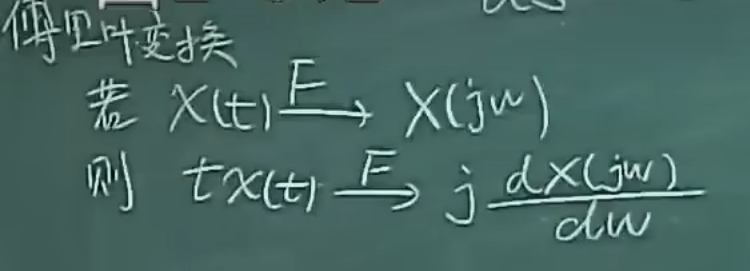 傅里叶变换
若 x(t) —F→ X(jw)
则 tx(t) —F→ j dX(jw)/dw